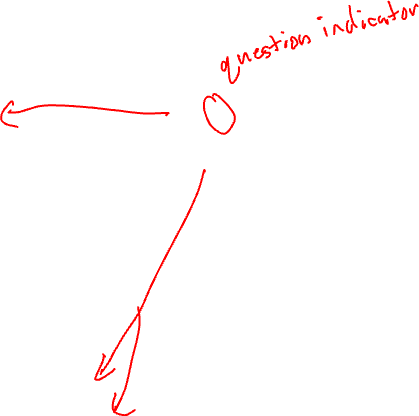 question indicator